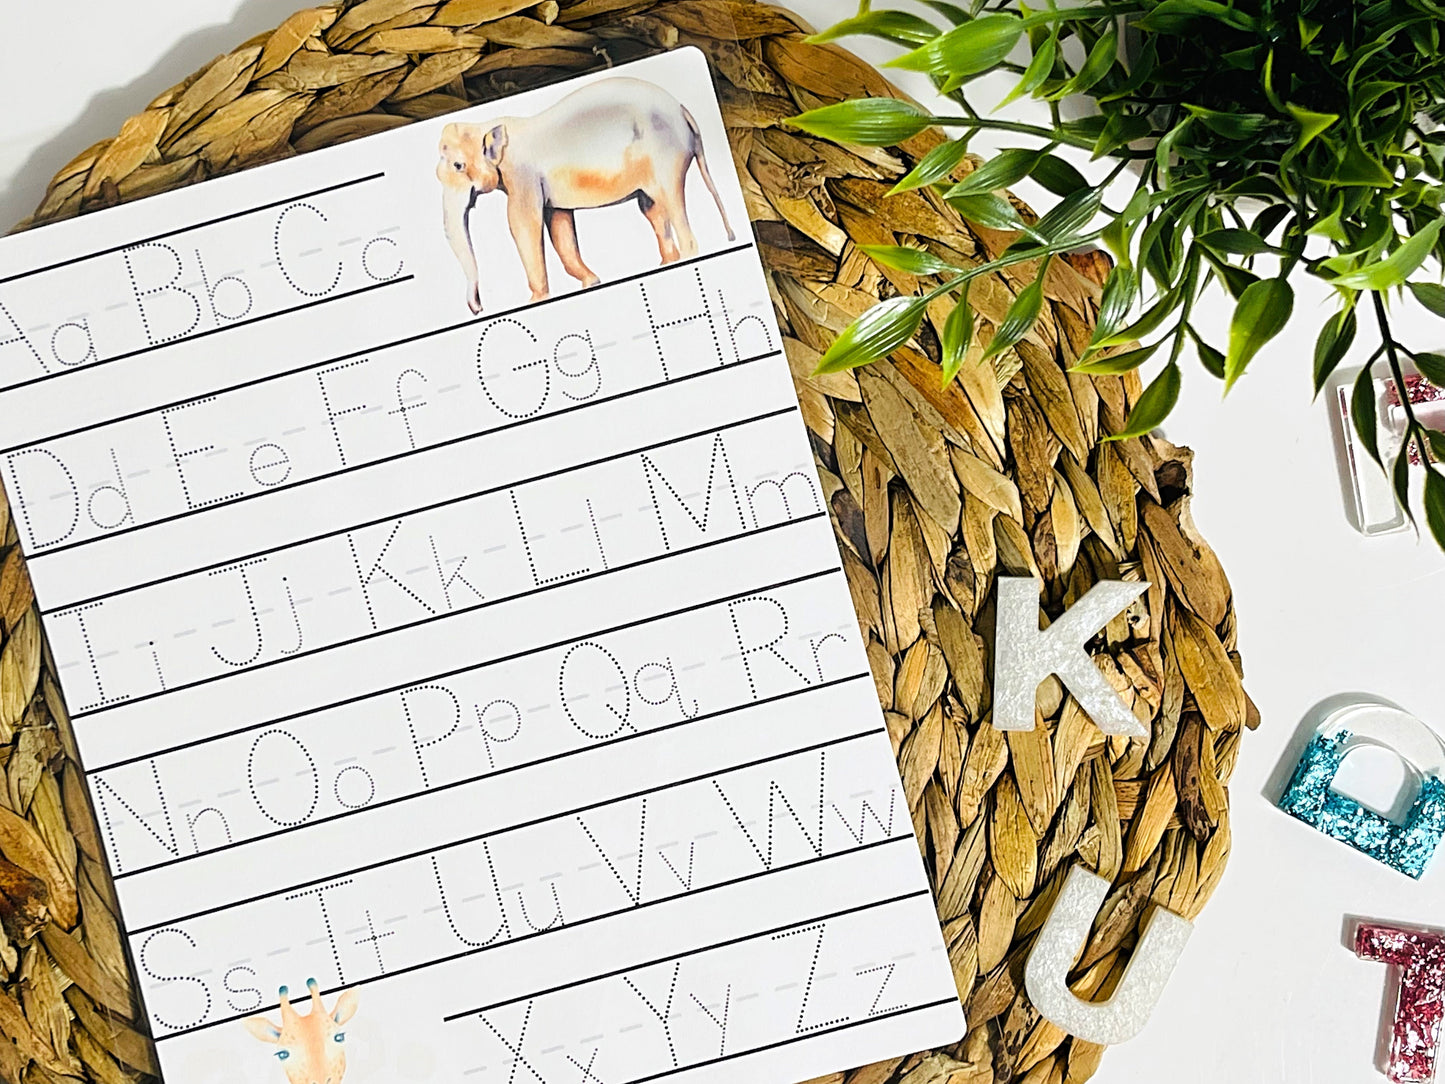 Aa Bb Cc
Dd Ee Ff Gg Hh
Ii Jj Kk Ll Mm
Nn Oo Pp Qq Rr
Ss Tt Uu Vv Ww
Xx Yy Zz
K
D
U
T